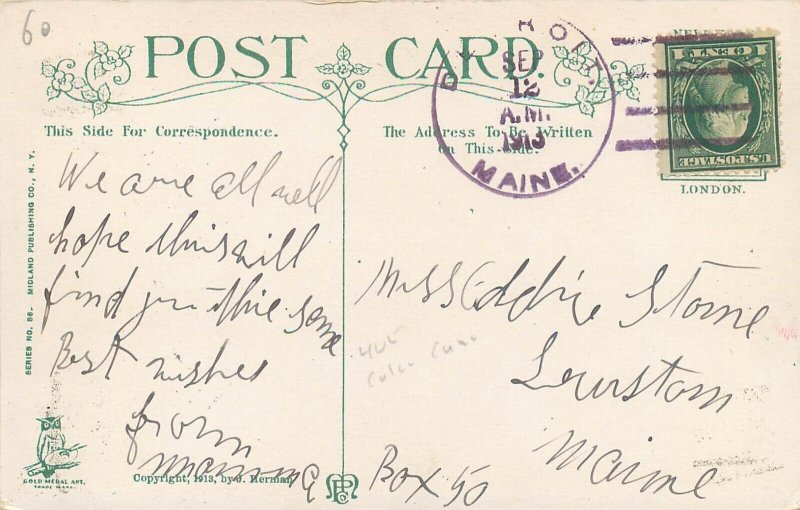 60
POST CARD.
This Side For Correspondence.
The Address To Be Written
on This Side.
SEP
12
A.M.
1913
MAINE.
U.S.POSTAGE
1 CENT 1
LONDON.
SERIES NO. 86. MIDLAND PUBLISHING CO., N. Y.
We are all well
hope this will
find you the same
Best wishes
from
Miss Eddie Stone
Lewiston
Maine
Box 50
GOLD MEDAL ART.
TRADE MARK.
Copyright, 1913, by J. Herman